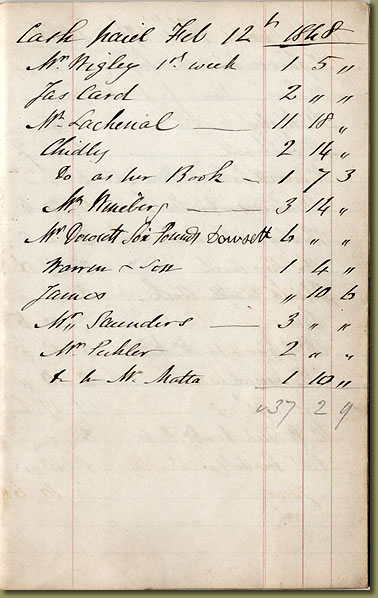 Cash paid Feb 12th 1848
Mr Wigley 1st week 1 5 "
Jas Card 2 " "
Mr Lachenal — 11 18 "
Chidly 2 14 "
Do as per Book - 1 7 3
Mr — 3 14 "
Mr Dowsett Six Pounds Dowsett 6 " "
Warren & Son 1 4 "
James " 10 6
Mr Saunders — 3 " "
Mr 2 " "
Mr Matta 1 10 "
37 2 9